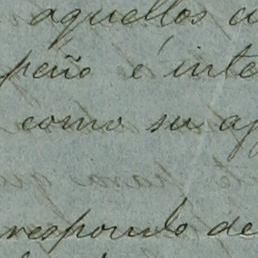 aquellos
peño é inte
como su ap
respondo de